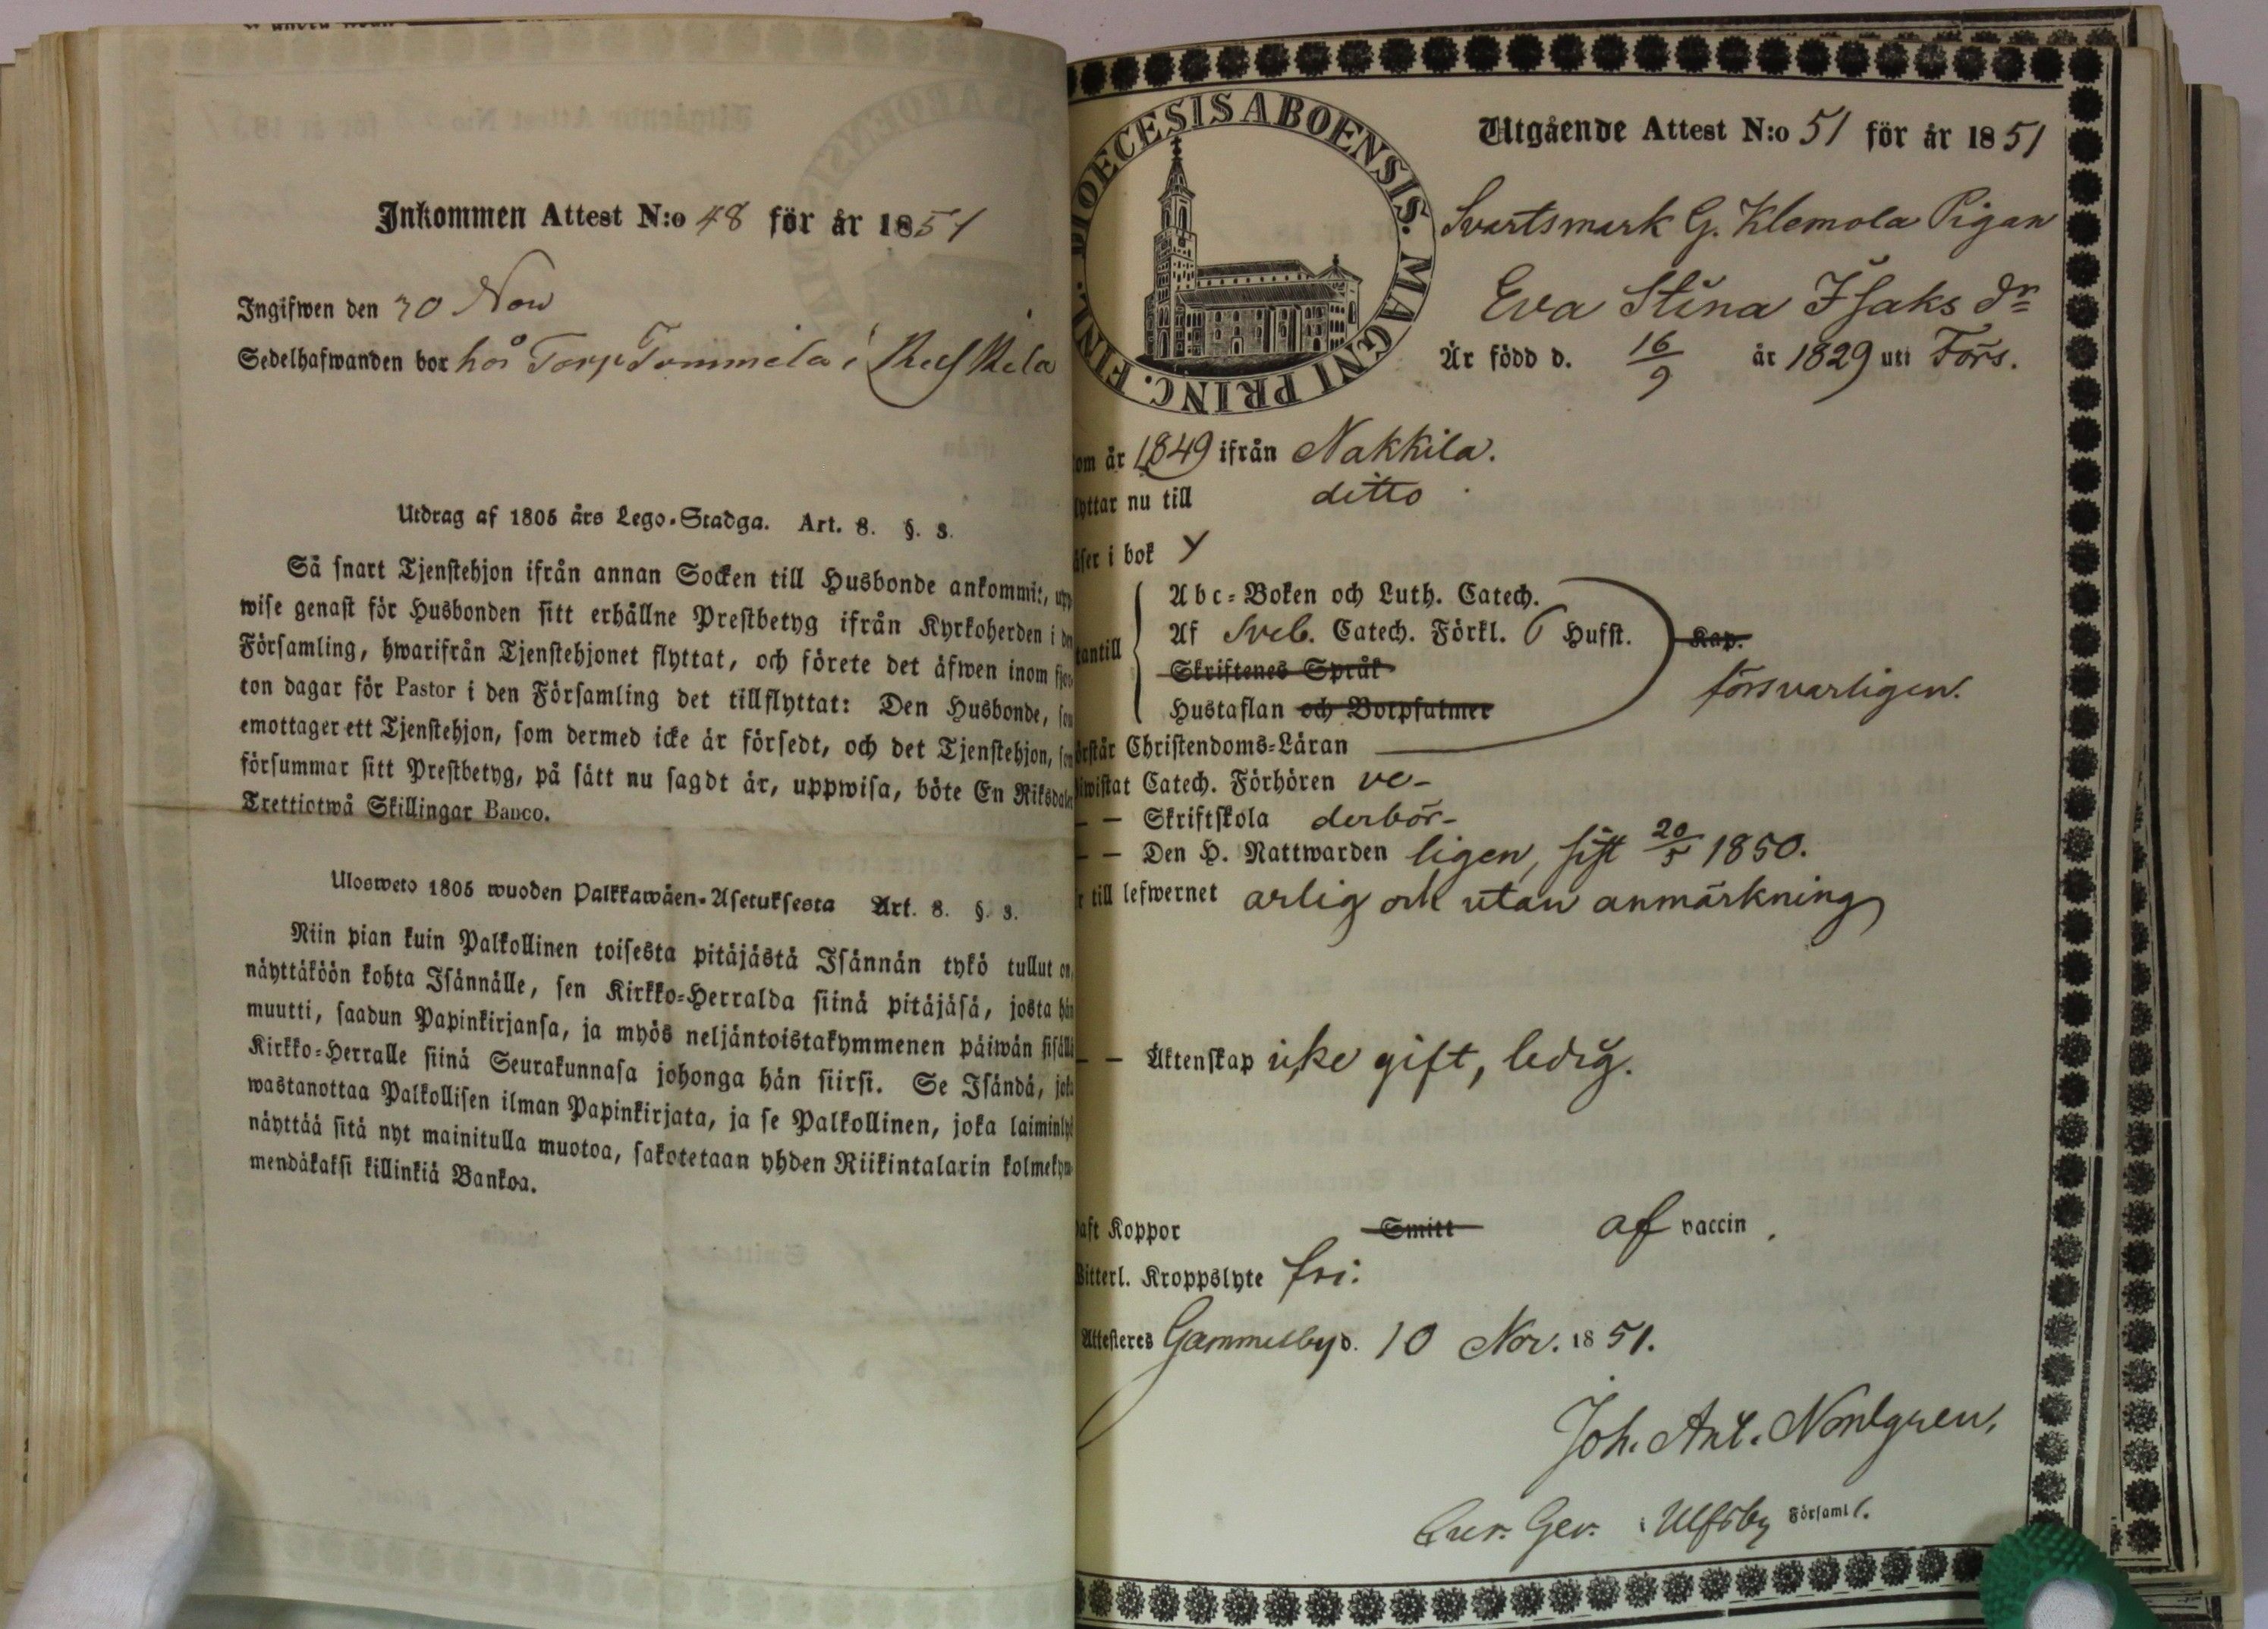 Inkommen Attest N:o 48 för år 1851
Ingifwen den 30 Nov
Sedelhafwanden bor hos Torp Tommila i
Utdrag af 1805 års Lego-Stadga. Art. 8. §. 3.
Så snart Tjenstehjon ifrån annan Socken till Husbonde ankommit, upp
wise genast för Husbonden sitt erhållne Prestbetyg ifrån Kyrkoherden i den
Församling, hwarifrån Tjenstehjonet flyttat, och förete det äfwen inom fjor
ton dagar för Pastor i den Församling det tillflyttat: Den Husbonde, som
emottager ett Tjenstehjon, som dermed icke är försedt, och det Tjenstehjon, som
försummar sitt Prestbetyg, på sätt nu sagdt är, uppwisa, böte En Riksdaler
Trettiotwå Skillingar Banco.
Ulosweto 1805 wuoden Palkkawäen-Asetuksesta Art. 8. §. 3.
Niin pian kuin Palkollinen toisesta pitäjästä Isännän tykö tullut on,
näyttäköön kohta Isännälle, sen Kirkko-Herralda siinä pitäjäsä, josta hän
muutti, saadun Papinkirjansa, ja myös neljäntoistakymmenen päiwän sisällä
Kirkko-Herralle siinä Seurakunnasa johonga hän siirsi. Se Isändä, joka
wastanottaa Palkollisen ilman Papinkirjata, ja se Palkollinen, joka laiminlyö
näyttää sitä nyt mainitulla muotoa, sakotetaan yhden Riikintalarin kolmekym-
mendäkaksi killinkiä Bankoa.
DIOECESIS ABOENSIS. MAGNI PRINC. FINL.
Utgående Attest N:o 51 för år 1851
Svartsmark G. Klemola Pigan
Eva Stina Isaks dr
Är född d. 16/9 år 1829 uti Förs.
om år 1849 ifrån Nakkila.
lyttar nu till ditto
äser i bok
Abc-Boken och Luth. Catech.
tantill Af Sveb. Catech. Förkl. 6 Hufst. Kap.
Skriftenes Språk
försvarligen.
Hustaflan och Botpsalmer
örstår Christendoms-Läran
iwistat Catech. Förhören ve-
— — Skriftskola derbör-
— — Den H. Nattwarden ligen, sist 20/5 1850.
r till lefwernet ärlig och utan anmärkning
— — Äktenskap icke gift, ledig.
aft Koppor Smitt af vaccin.
Witterl. Kroppslyte fri.
Attesteres Gammelby d. 10 Nov. 1851.
Joh. Ant. Nordgren,
Cur. Ger. i Ulfsby Församl.